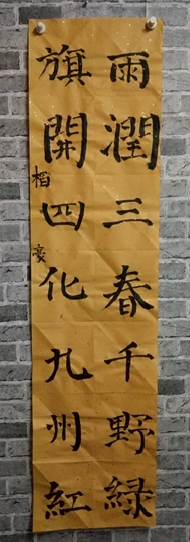 雨潤三春千野緑
旗開四化九州紅